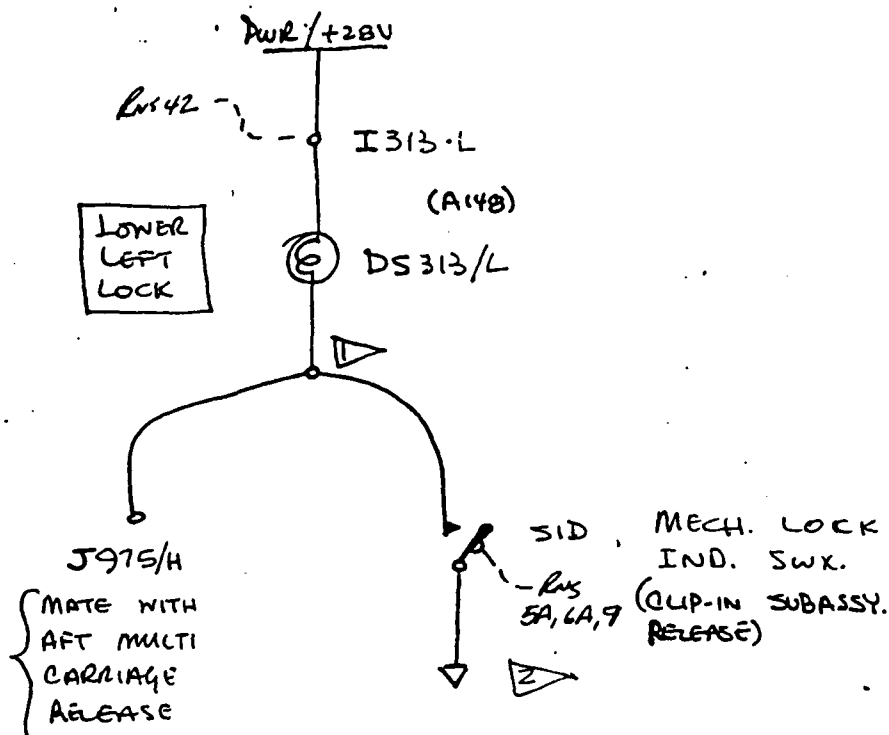 PWR/+28V
Rns 42
I313-L
(A148)
LOWER
LEFT
LOCK
DS313/L
1
J975/H
MATE WITH
AFT MULTI
CARRIAGE
RELEASE
S1D, MECH. LOCK
IND. SWX.
Rns
5A, 6A, 9
(CLIP-IN SUBASSY.
RELEASE)
2